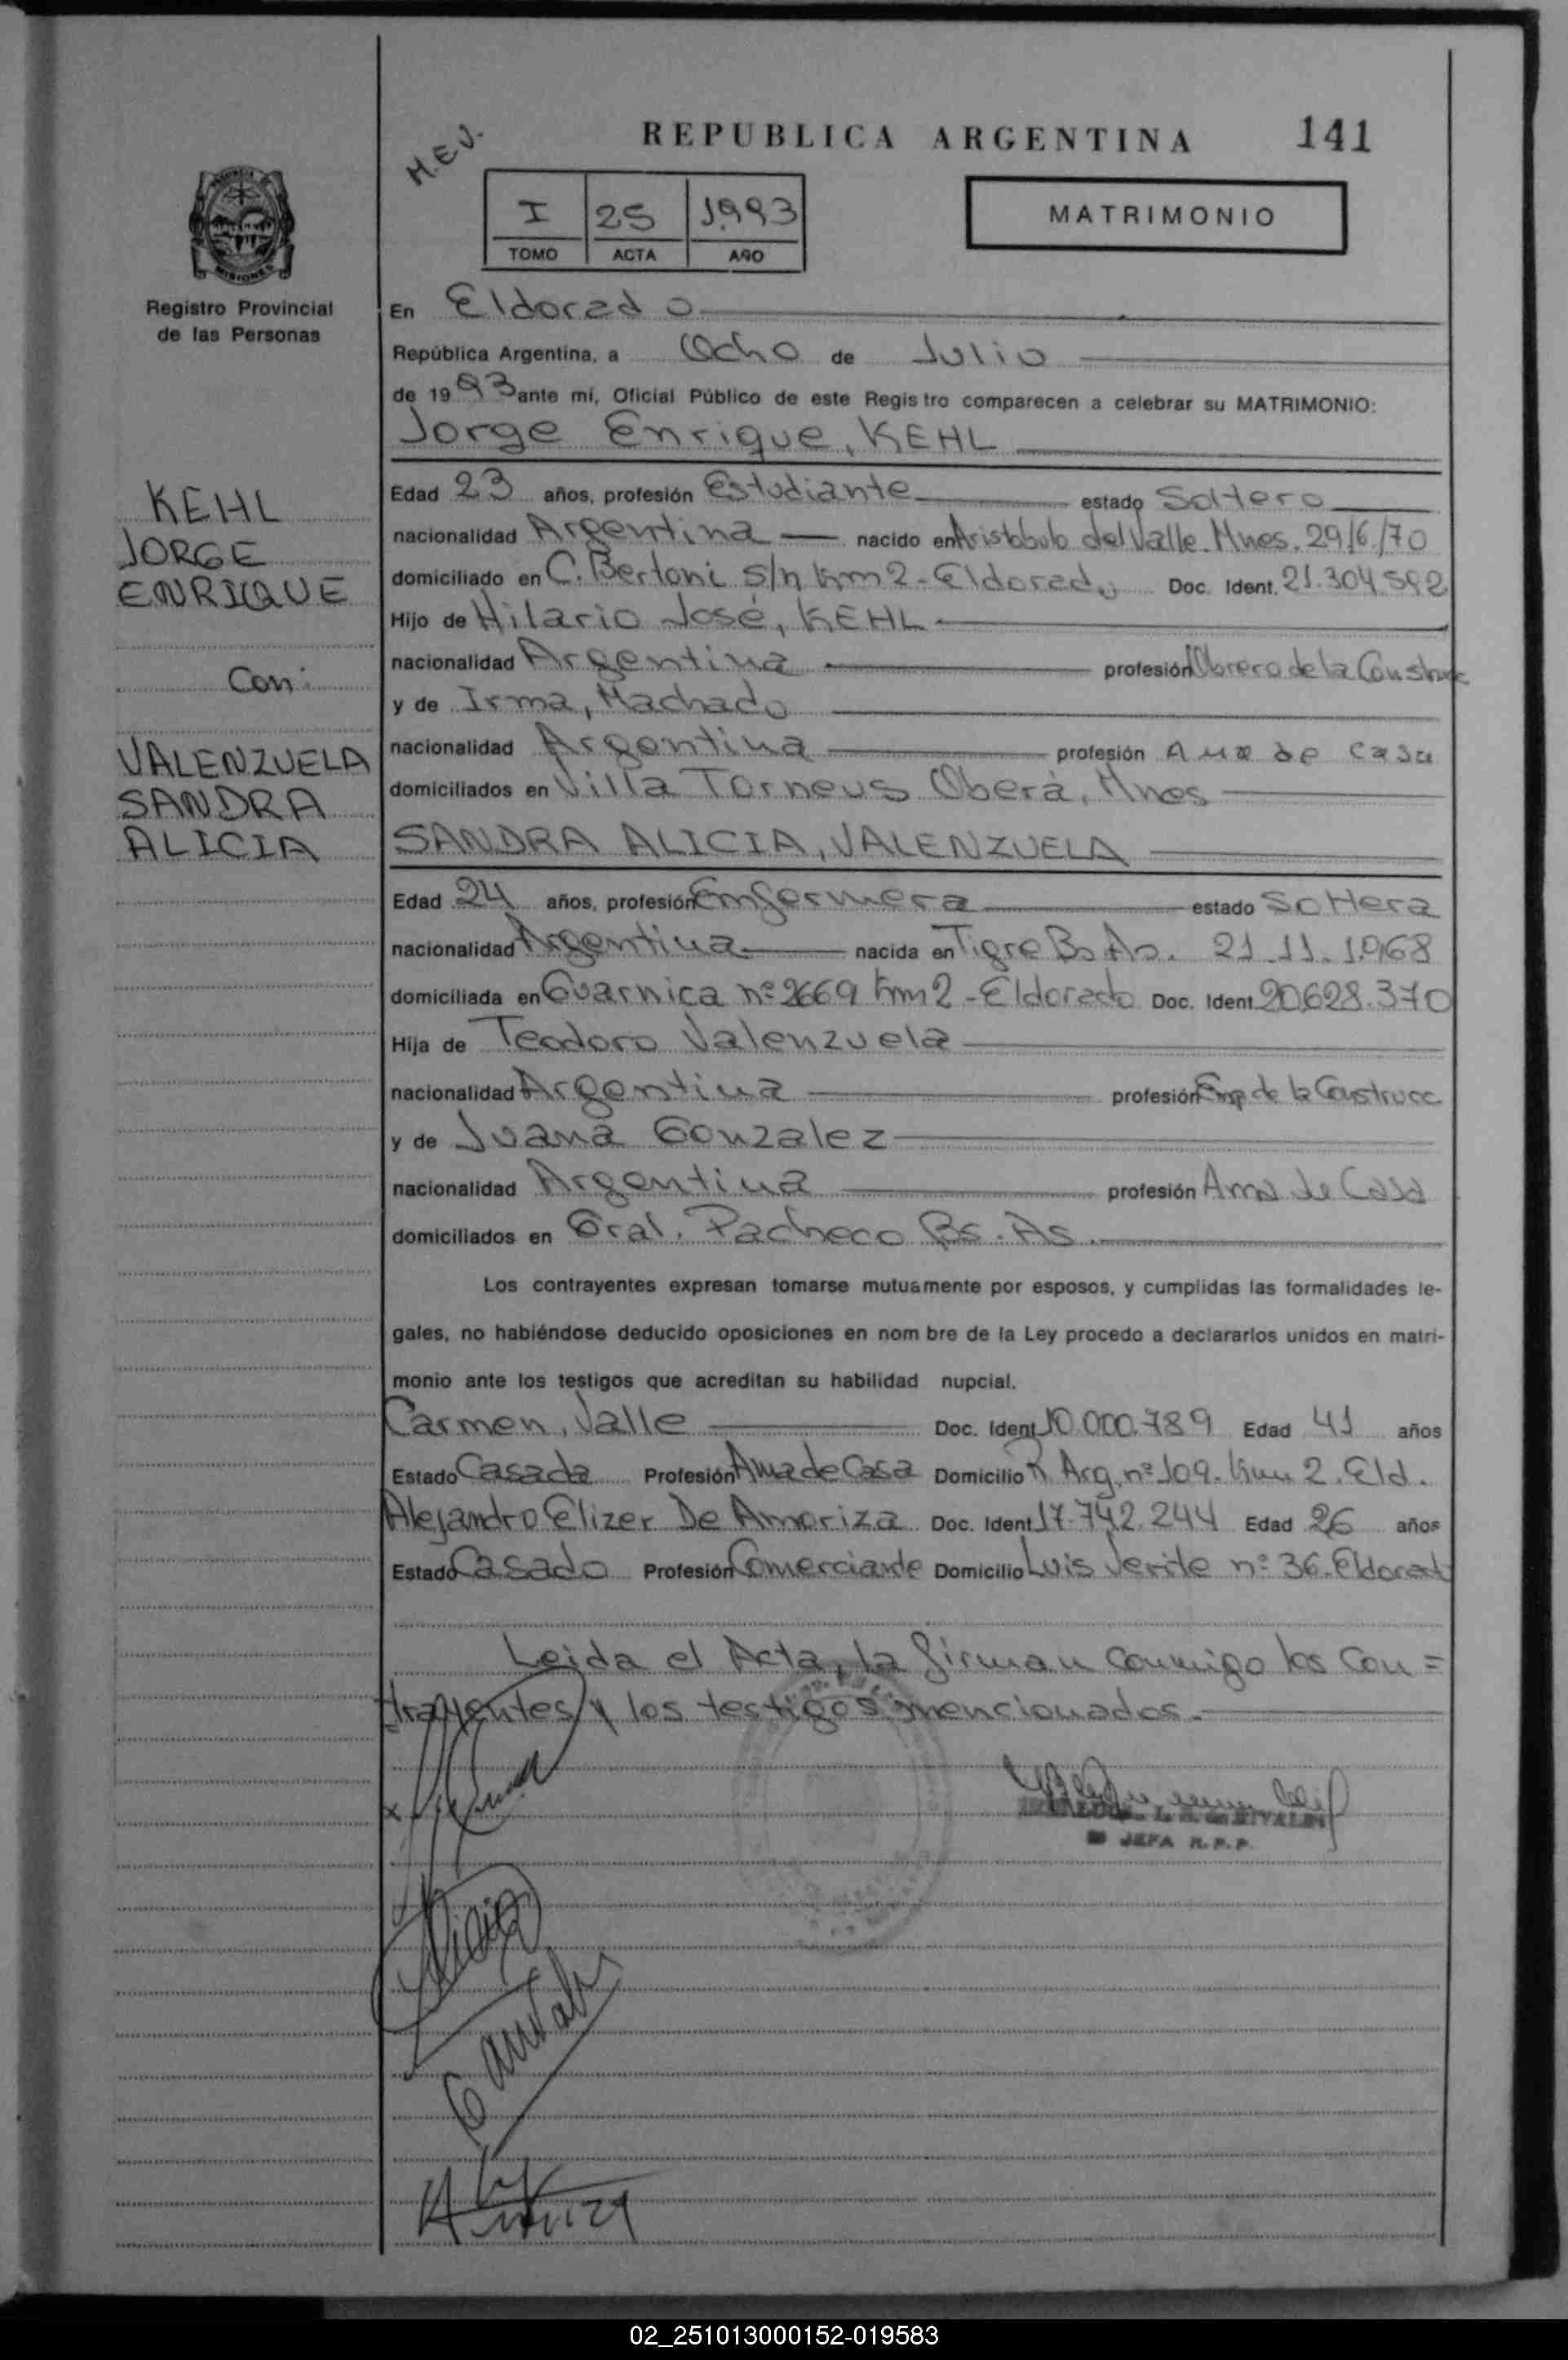 H.E.J.
REPUBLICA ARGENTINA 141
I 25 1.993
TOMO ACTA AÑO
MATRIMONIO
MISIONES
Registro Provincial
de las Personas
En Eldorado
República Argentina, a Ocho de Julio
de 1993 ante mí, Oficial Público de este Registro comparecen a celebrar su MATRIMONIO:
Jorge Enrique, KEHL
KEHL
JORGE
ENRIQUE
Con:
VALENZUELA
SANDRA
ALICIA
Edad 23 años, profesión Estudiante estado Soltero
nacionalidad Argentina nacido en Aristóbulo del Valle. Mnes. 29/6/70
domiciliado en C. Bertoni s/n Km 2 - Eldorado Doc. Ident. 21.304.592
Hijo de Hilario José, KEHL
nacionalidad Argentina profesión Obrero de la Construc
y de Irma, Machado
nacionalidad Argentina profesión Ama de casa
domiciliados en Villa Torneus Oberá, Mnes
SANDRA ALICIA, VALENZUELA
Edad 24 años, profesión Enfermera estado Soltera
nacionalidad Argentina nacida en Tigre Bs As. 21.11.1.968
domiciliada en Guarnica nº 2669 Km 2 - Eldorado Doc. Ident. 20.628.370
Hija de Teodoro Valenzuela
nacionalidad Argentina profesión Emp de la Construcc
y de Juana Gonzalez
nacionalidad Argentina profesión Ama de Casa
domiciliados en Gral. Pacheco Bs. As.
Los contrayentes expresan tomarse mutuamente por esposos, y cumplidas las formalidades le-
gales, no habiéndose deducido oposiciones en nom bre de la Ley procedo a declararlos unidos en matri-
monio ante los testigos que acreditan su habilidad nupcial.
Carmen, Valle Doc. Ident 10.000.789 Edad 41 años
Estado Casada Profesión Ama de Casa Domicilio R. Arg. nº 109. Km 2. Eld.
Alejandro Elizer De Amoriza Doc. Ident 17.742.244 Edad 26 años
Estado Casado Profesión Comerciante Domicilio Luis Verite nº 36. Eldorado
Leida el Acta, la firman conmigo los Con=
trayentes y los testigos mencionados.
JEFA R.P.P.
02_251013000152-019583